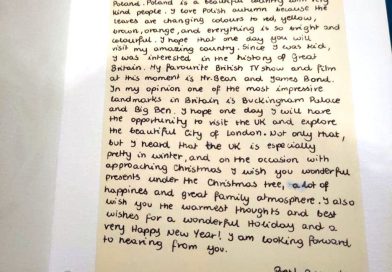 Poland. Poland is a beautiful country with very
kind people. I love Polish autumn because the
leaves are changing colours to red, yellow,
brown, orange, and everything is so bright and
colourful. I hope that one day you will
visit my amazing country. Since I was kid,
I was interested in the history of Great
Britain. My favourite British TV show and film
at this moment is Mr. Bean and James Bond.
In my opinion one of the most impressive
landmarks in Britain is Buckingham Palace
and Big Ben. I hope one day I will have
the opportunity to visit the UK and explore
the beautiful City of London. Not only that,
but I heard that the UK is especially
pretty in winter, and on the occasion with
approaching Christmas I wish you wonderful
presents under the Christmas tree, a lot of
happines and great family atmosphere. I also
wish you the warmest thoughts and best
wishes for a wonderful Holiday and a
very Happy New Year! I am looking forward
to hearing from you.